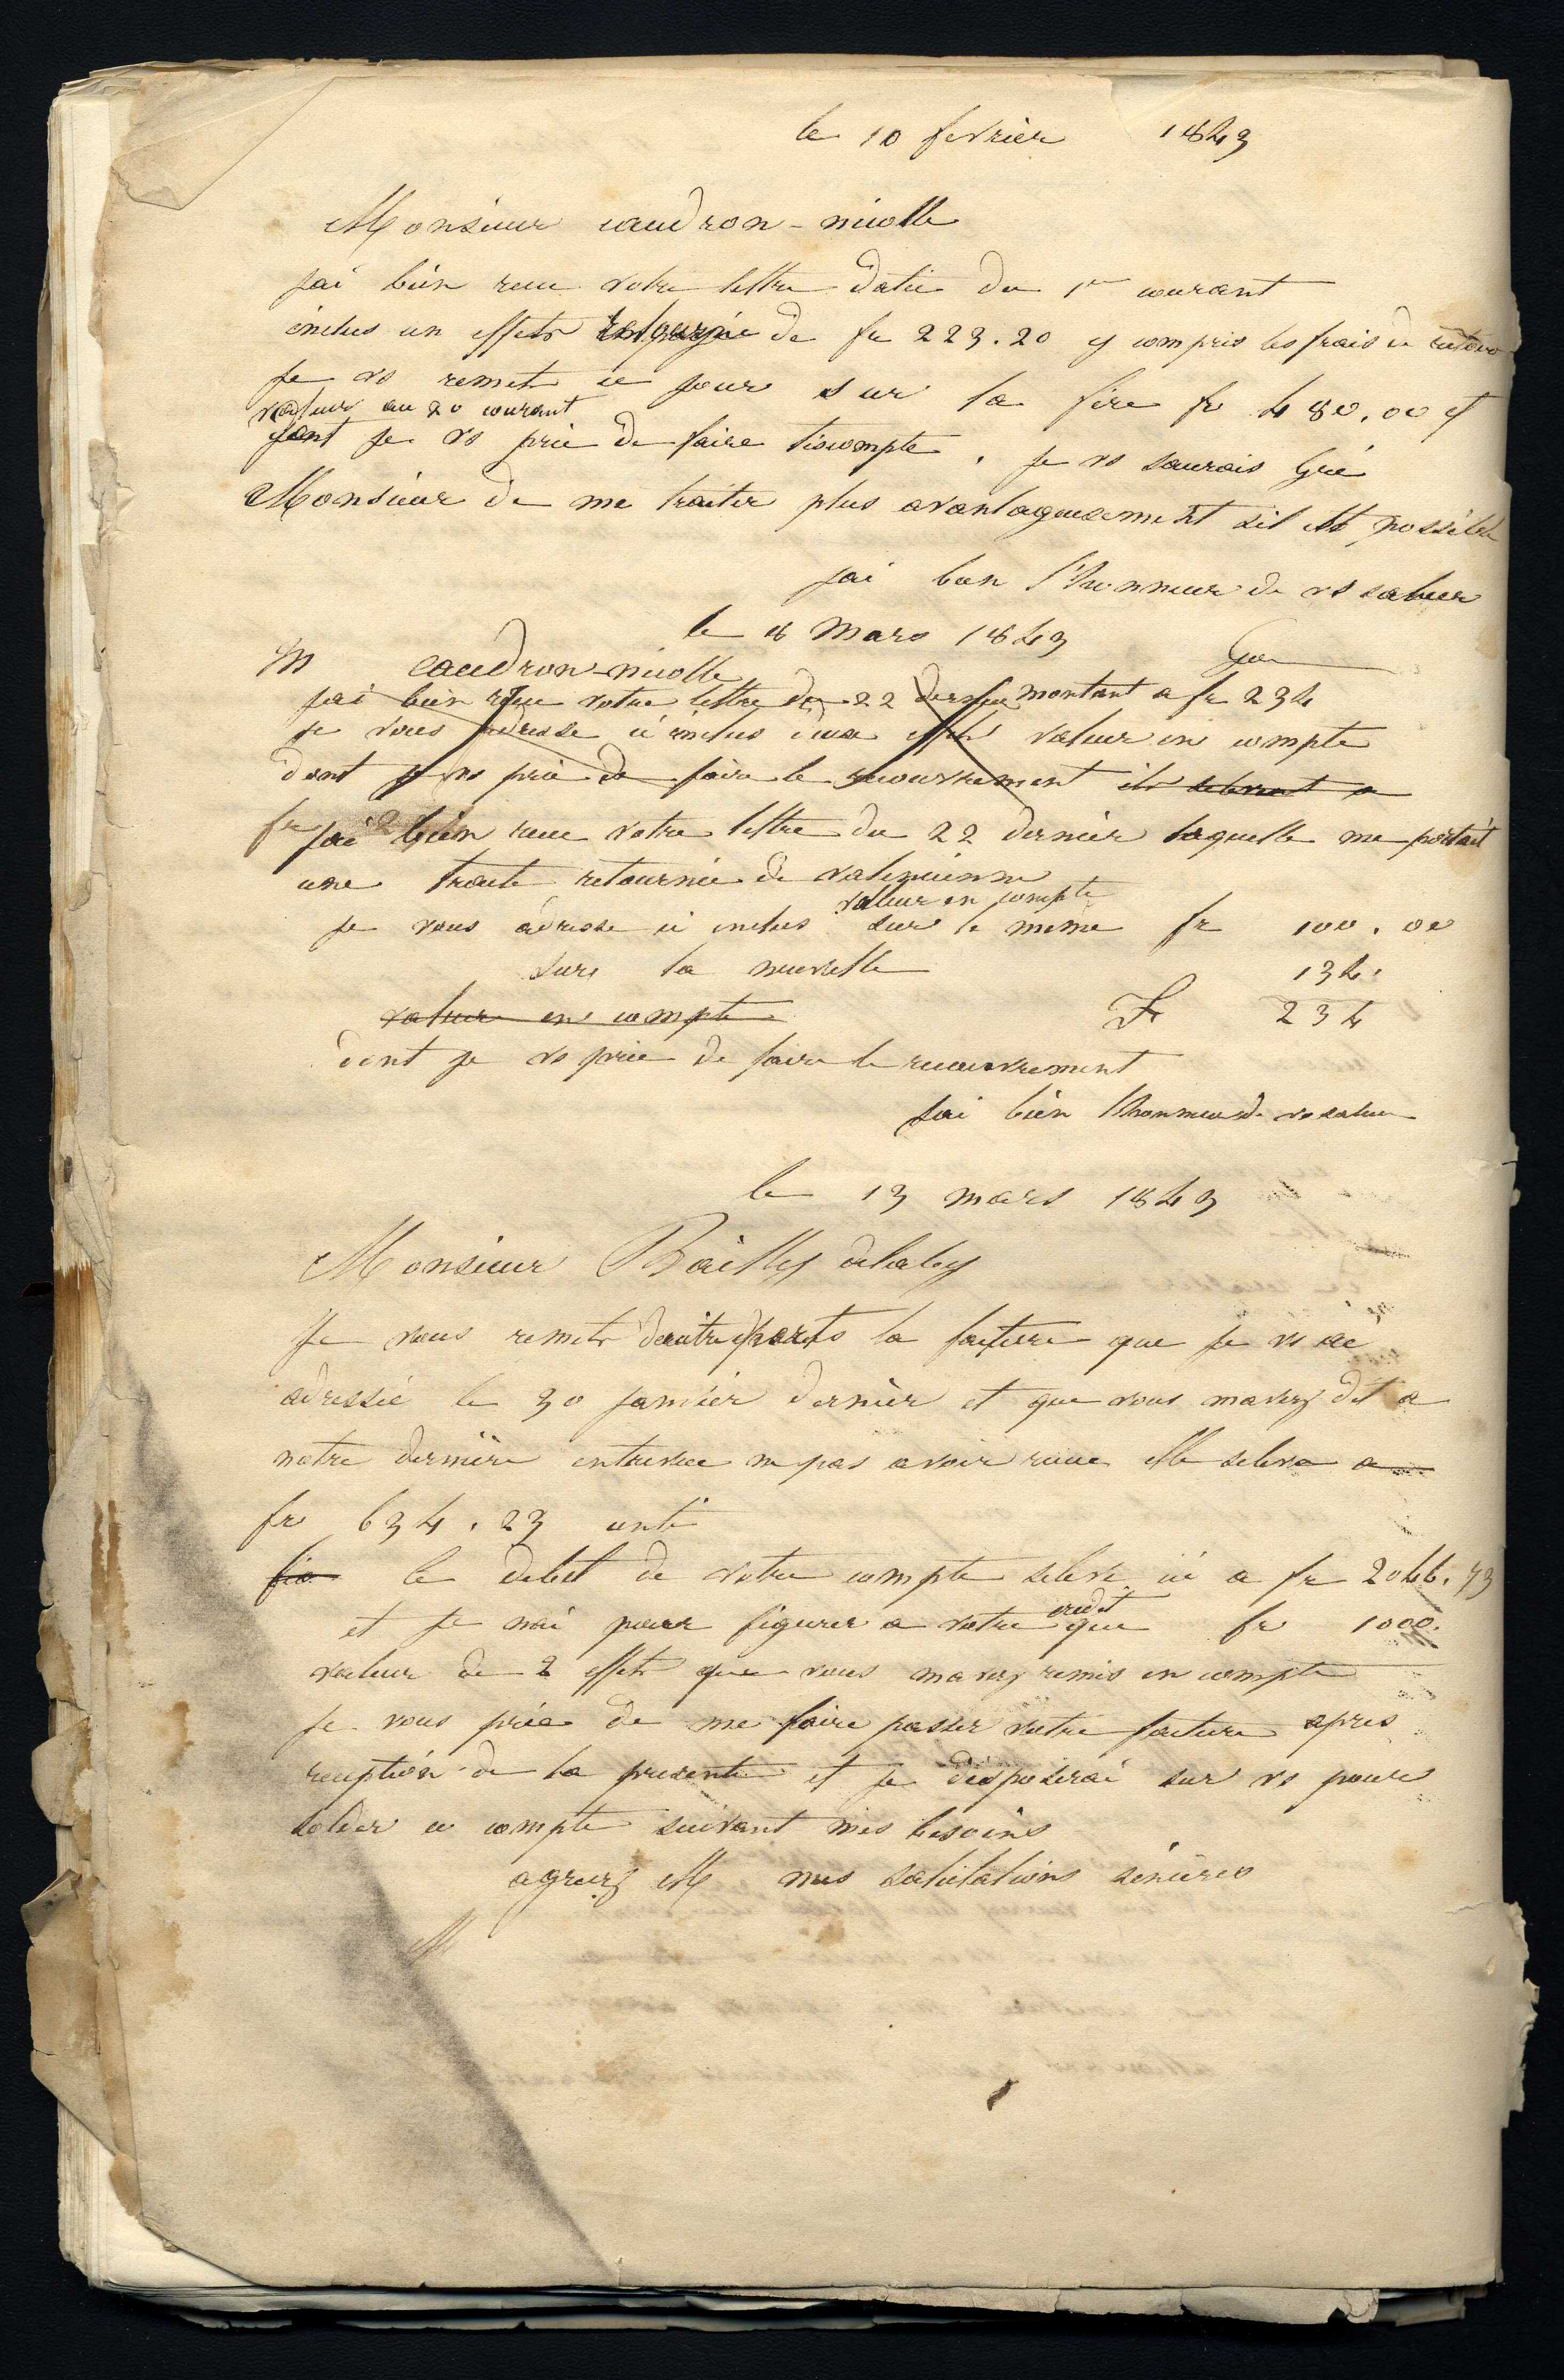 le 10 fevrier 1843
Monsieur caudron-nicolle
jai bien recu votre lettre datée du 1er courant
inclus un effets retournée de fr 223.20 y compris les frais de retour
je vs remet ce jour sur la fère fr 480.00
valeur au 20 courant
dont je vs prie de faire liscompte. je vs saurais Gré
Monsieur de me traiter plus avantageusement sil est possible
jai bien l'honneur de vs saluer
le 8 Mars 1843
M caudron-nicolle
jai bien reçu votre lettre du 22 dernier montant a fr 234
je vous adresse ci inclus deux effets valeur en compte
dont je vs prie de faire le recouvrement ils selevent a
fr jai bien recu votre lettre du 22 dernier laquelle me portait
une traite retournée de valencienne
valeur en compte
je vous adresse ci inclus sur le meme fr 100.00
sur la neuvelle 134.
valeur en compte Fr 234
dont je vs prie de faire le recouvrement
jai bien lhonneur de vs saluer
le 13 mars 1843
Monsieur Bailly
je vous remets dautreparts la facture que je vs ai
adressée le 30 janvier dernier et que vous mavez dit a
notre dernière entrevue ne pas avoir recue elle seleve a
fr 634.23
le debet de votre compte seleve ici a fr 2046.73
et je nai pour figurer a votre credit que fr 1000.
valeur de 2 effets que vous mavez remis en compte
je vous prie de me faire passer votre facture apres
reception de la presente et je disposerai sur vs pour
solder ce compte suivant mes besoins
agreez M mes salutations sincères
M